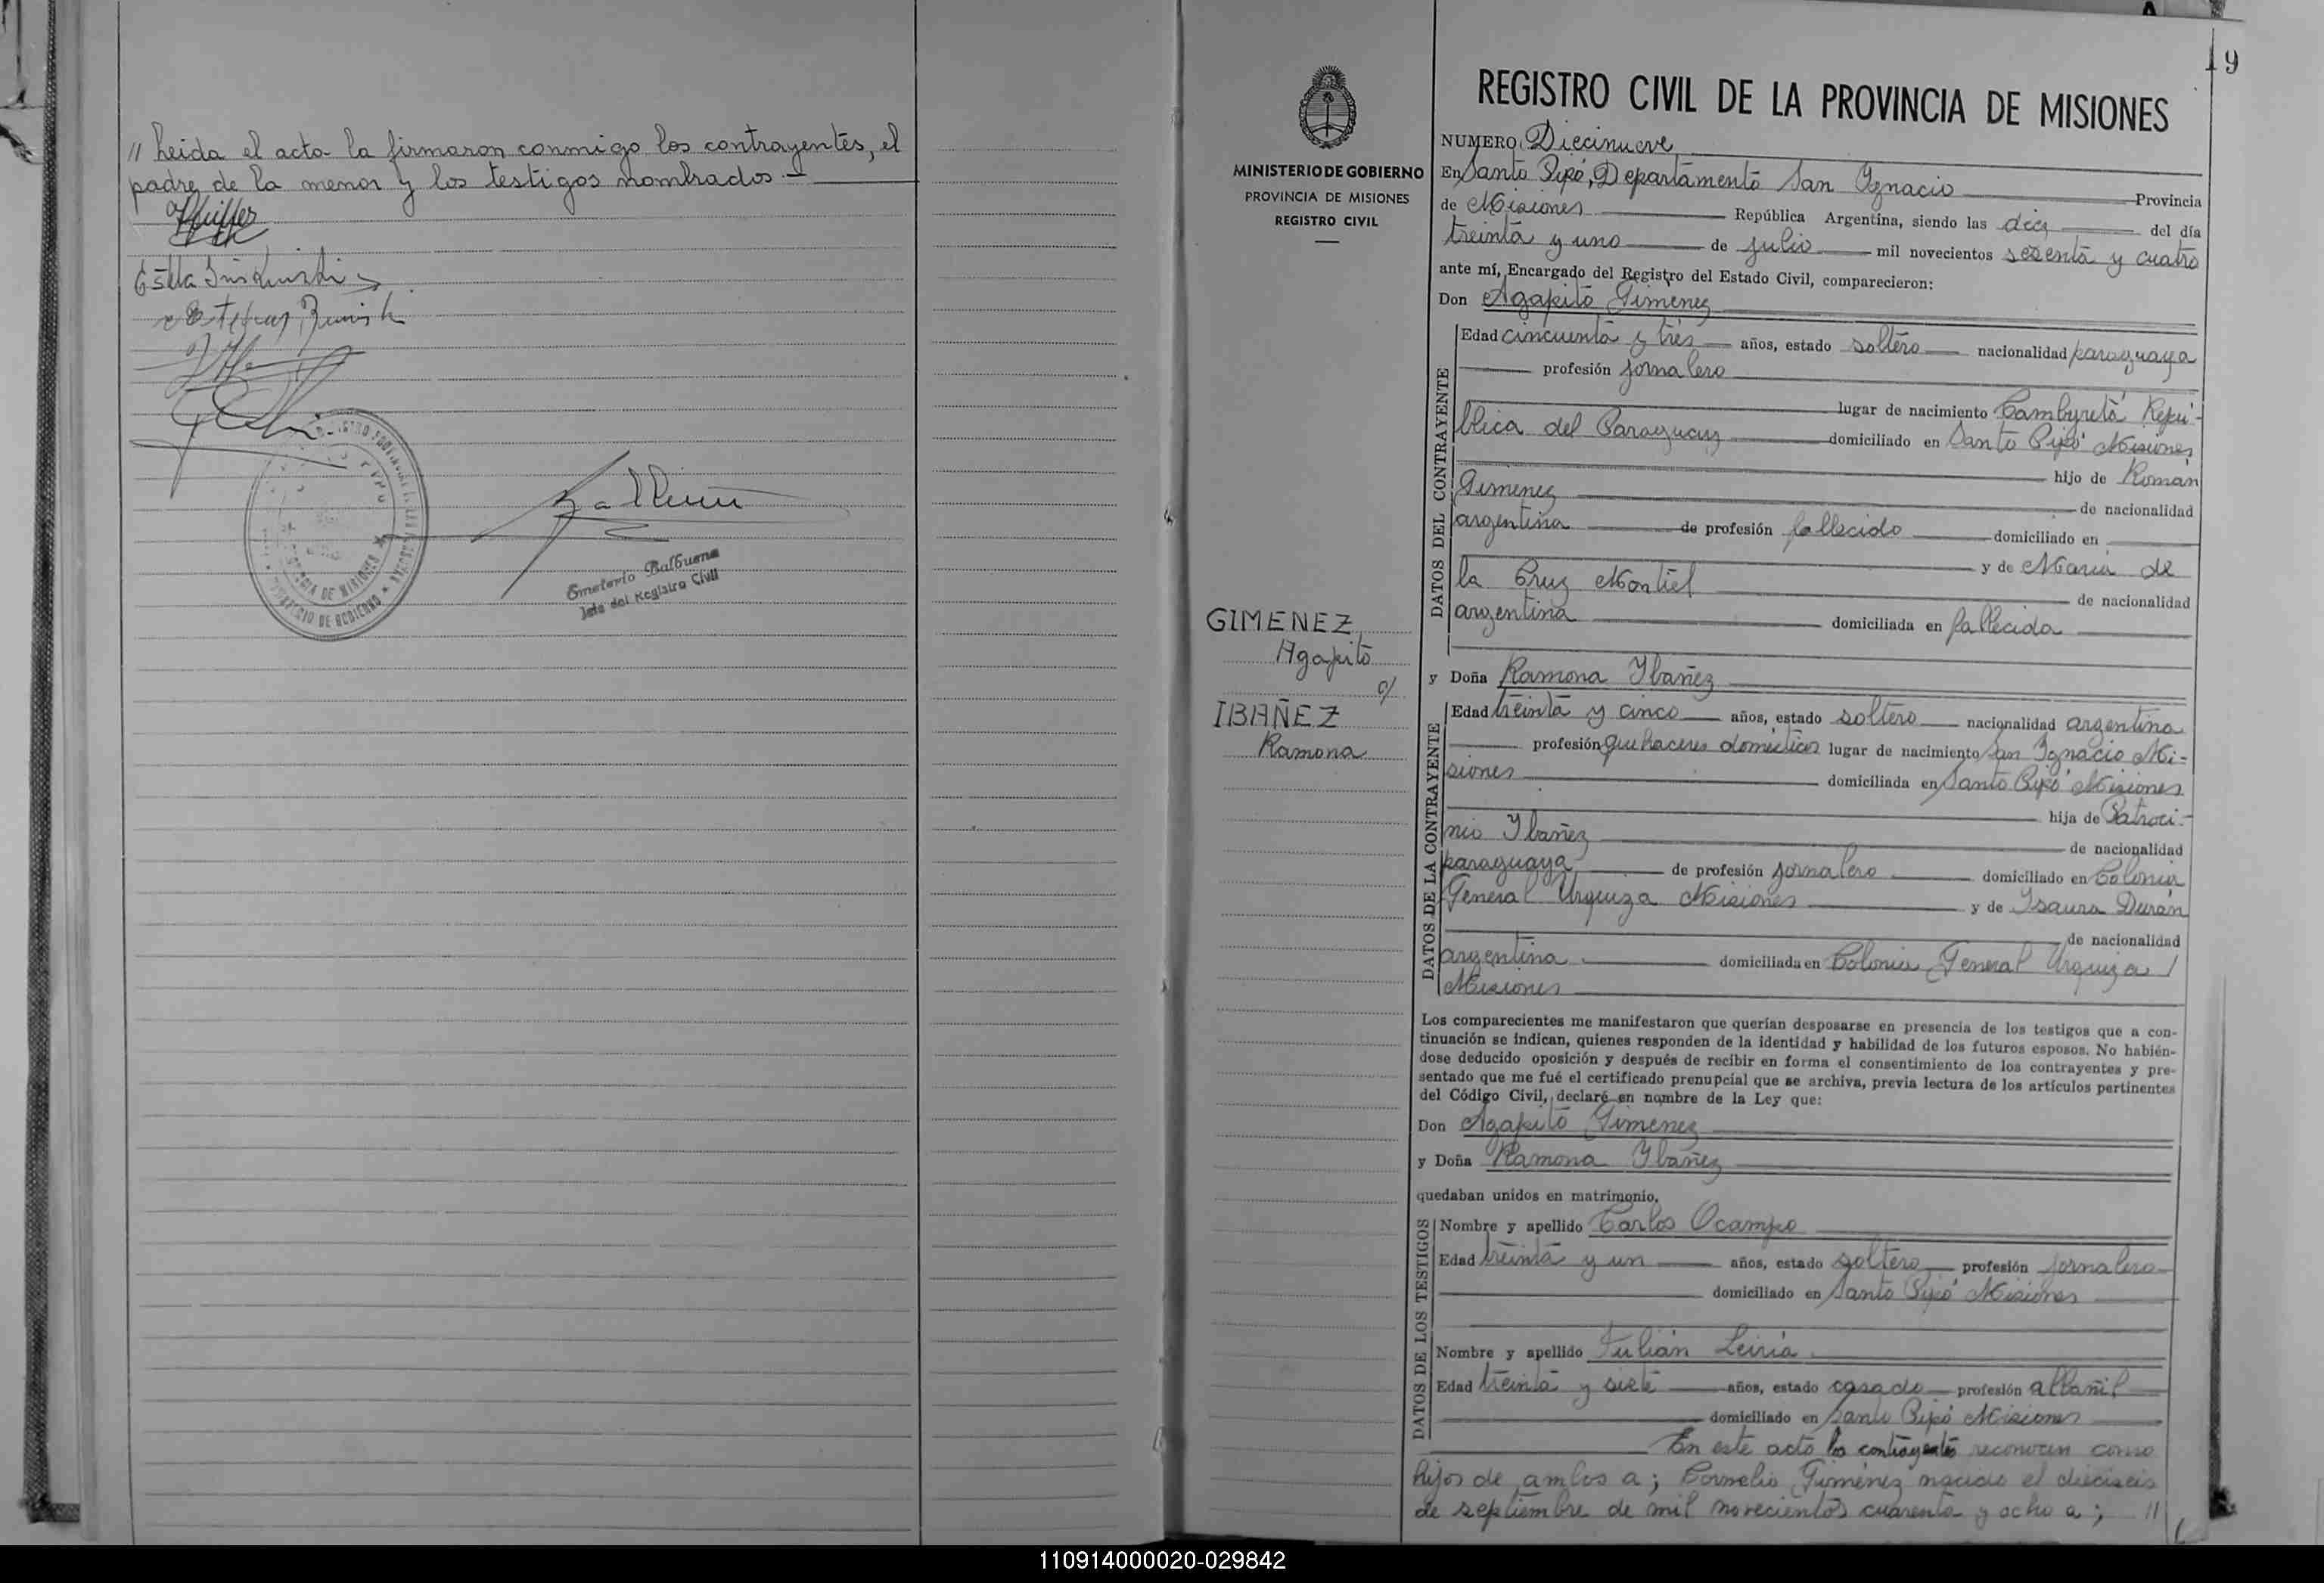 // Leida el acta la firmaron conmigo los contrayentes, el
padre de la menor y los testigos nombrados.-
Emeterio Balbuena
Jefe del Registro Civil
19
MINISTERIO DE GOBIERNO
PROVINCIA DE MISIONES
REGISTRO CIVIL
GIMENEZ
Agapito
c/
IBAÑEZ
Ramona
REGISTRO CIVIL DE LA PROVINCIA DE MISIONES
NUMERO Diecinueve
En Santo Pipó, Departamento San Ignacio Provincia
de Misiones República Argentina, siendo las diez del día
treinta y uno de julio mil novecientos sesenta y cuatro
ante mí, Encargado del Registro del Estado Civil, comparecieron:
Don Agapito Gimenez
DATOS DEL CONTRAYENTE
Edad cincuenta y tres años, estado soltero nacionalidad paraguaya
profesión jornalero
lugar de nacimiento Cambyretá Repú-
blica del Paraguay domiciliado en Santo Pipó Misiones
hijo de Roman
Gimenez de nacionalidad
argentina de profesión fallecido domiciliado en
y de Maria de
la Cruz Montiel de nacionalidad
argentina domiciliada en fallecida
y Doña Ramona Ybañez
DATOS DE LA CONTRAYENTE
Edad treinta y cinco años, estado soltero nacionalidad argentina
profesión quehaceres domésticos lugar de nacimiento San Ignacio Mi-
siones domiciliada en Santo Pipó Misiones
hija de Patroci-
nio Ybañez de nacionalidad
paraguaya de profesión jornalero domiciliado en Colonia
General Urquiza Misiones y de Isaura Durán
de nacionalidad
argentina domiciliada en Colonia General Urquiza /
Misiones
Los comparecientes me manifestaron que querían desposarse en presencia de los testigos que a con-
tinuación se indican, quienes responden de la identidad y habilidad de los futuros esposos. No habién-
dose deducido oposición y después de recibir en forma el consentimiento de los contrayentes y pre-
sentado que me fué el certificado prenupcial que se archiva, previa lectura de los artículos pertinentes
del Código Civil, declaré en nombre de la Ley que:
Don Agapito Gimenez
y Doña Ramona Ybañez
quedaban unidos en matrimonio.
DATOS DE LOS TESTIGOS
Nombre y apellido Carlos Ocampo
Edad treinta y un años, estado soltero profesión jornalero
domiciliado en Santo Pipó Misiones
Nombre y apellido Julián Leiria
Edad treinta y siete años, estado casado profesión albañil
domiciliado en Santo Pipó Misiones
En este acto los contrayentes reconocen como
hijos de ambos a; Cornelio Giménez nacido el dieciseis
de septiembre de mil novecientos cuarenta y ocho a; //
110914000020-029842